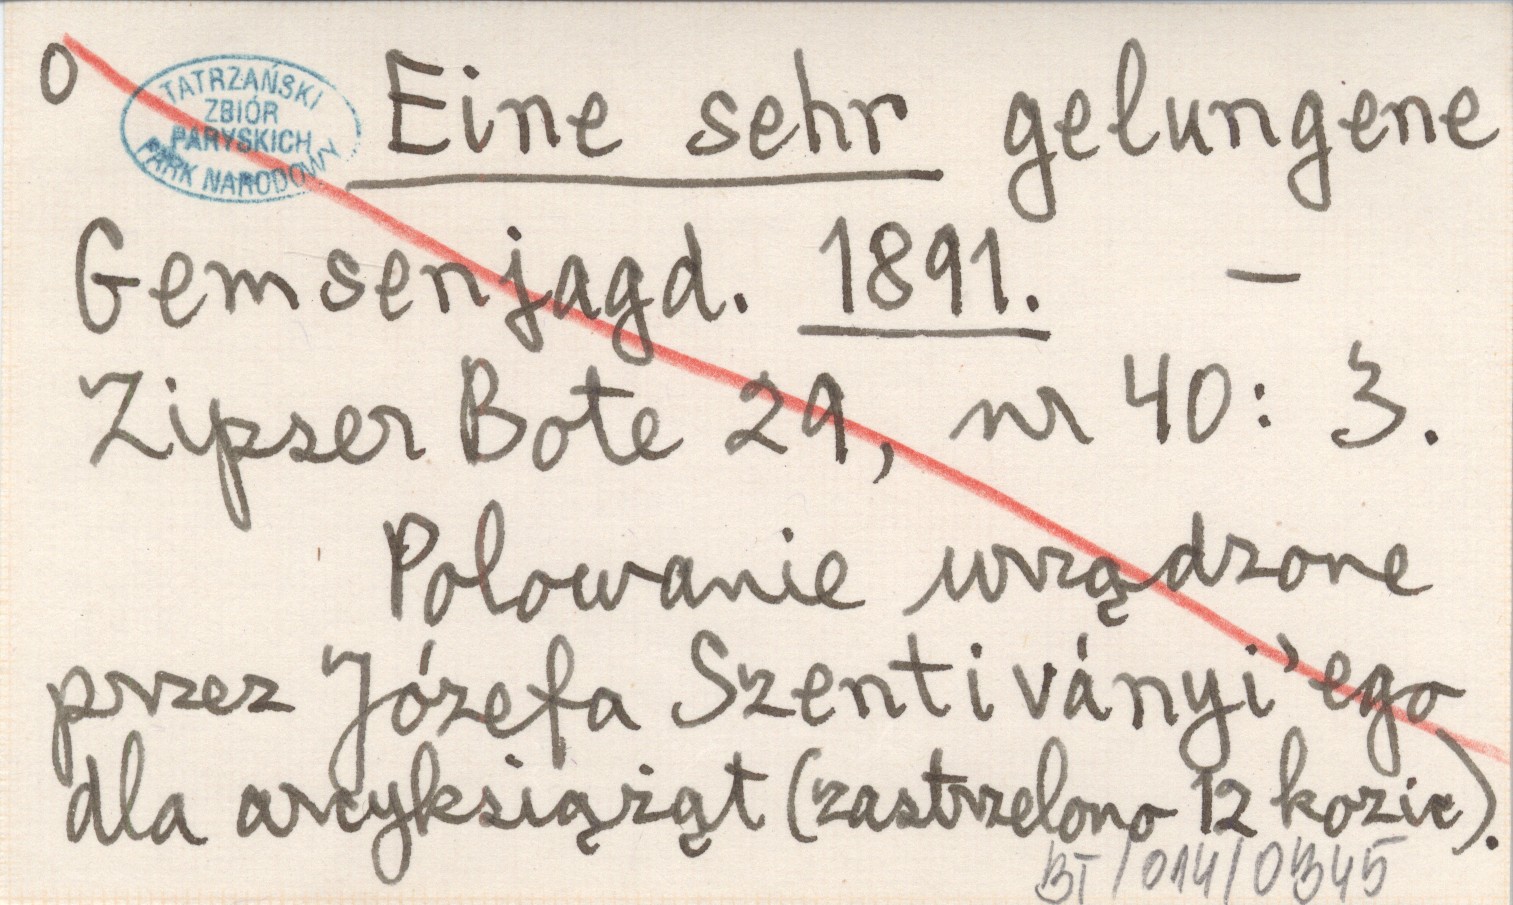 O
TATRZAŃSKI
ZBIÓR
PARYSKICH
PARK NARODOWY
Eine sehr gelungene
Gemsenjagd. 1891. —
Zipser Bote 29, nr 40: 3.
Polowanie urządzone
przez Józefa Szentiványi'ego
dla arcyksiążąt (zastrzelono 12 kozic).
BT/014/0345